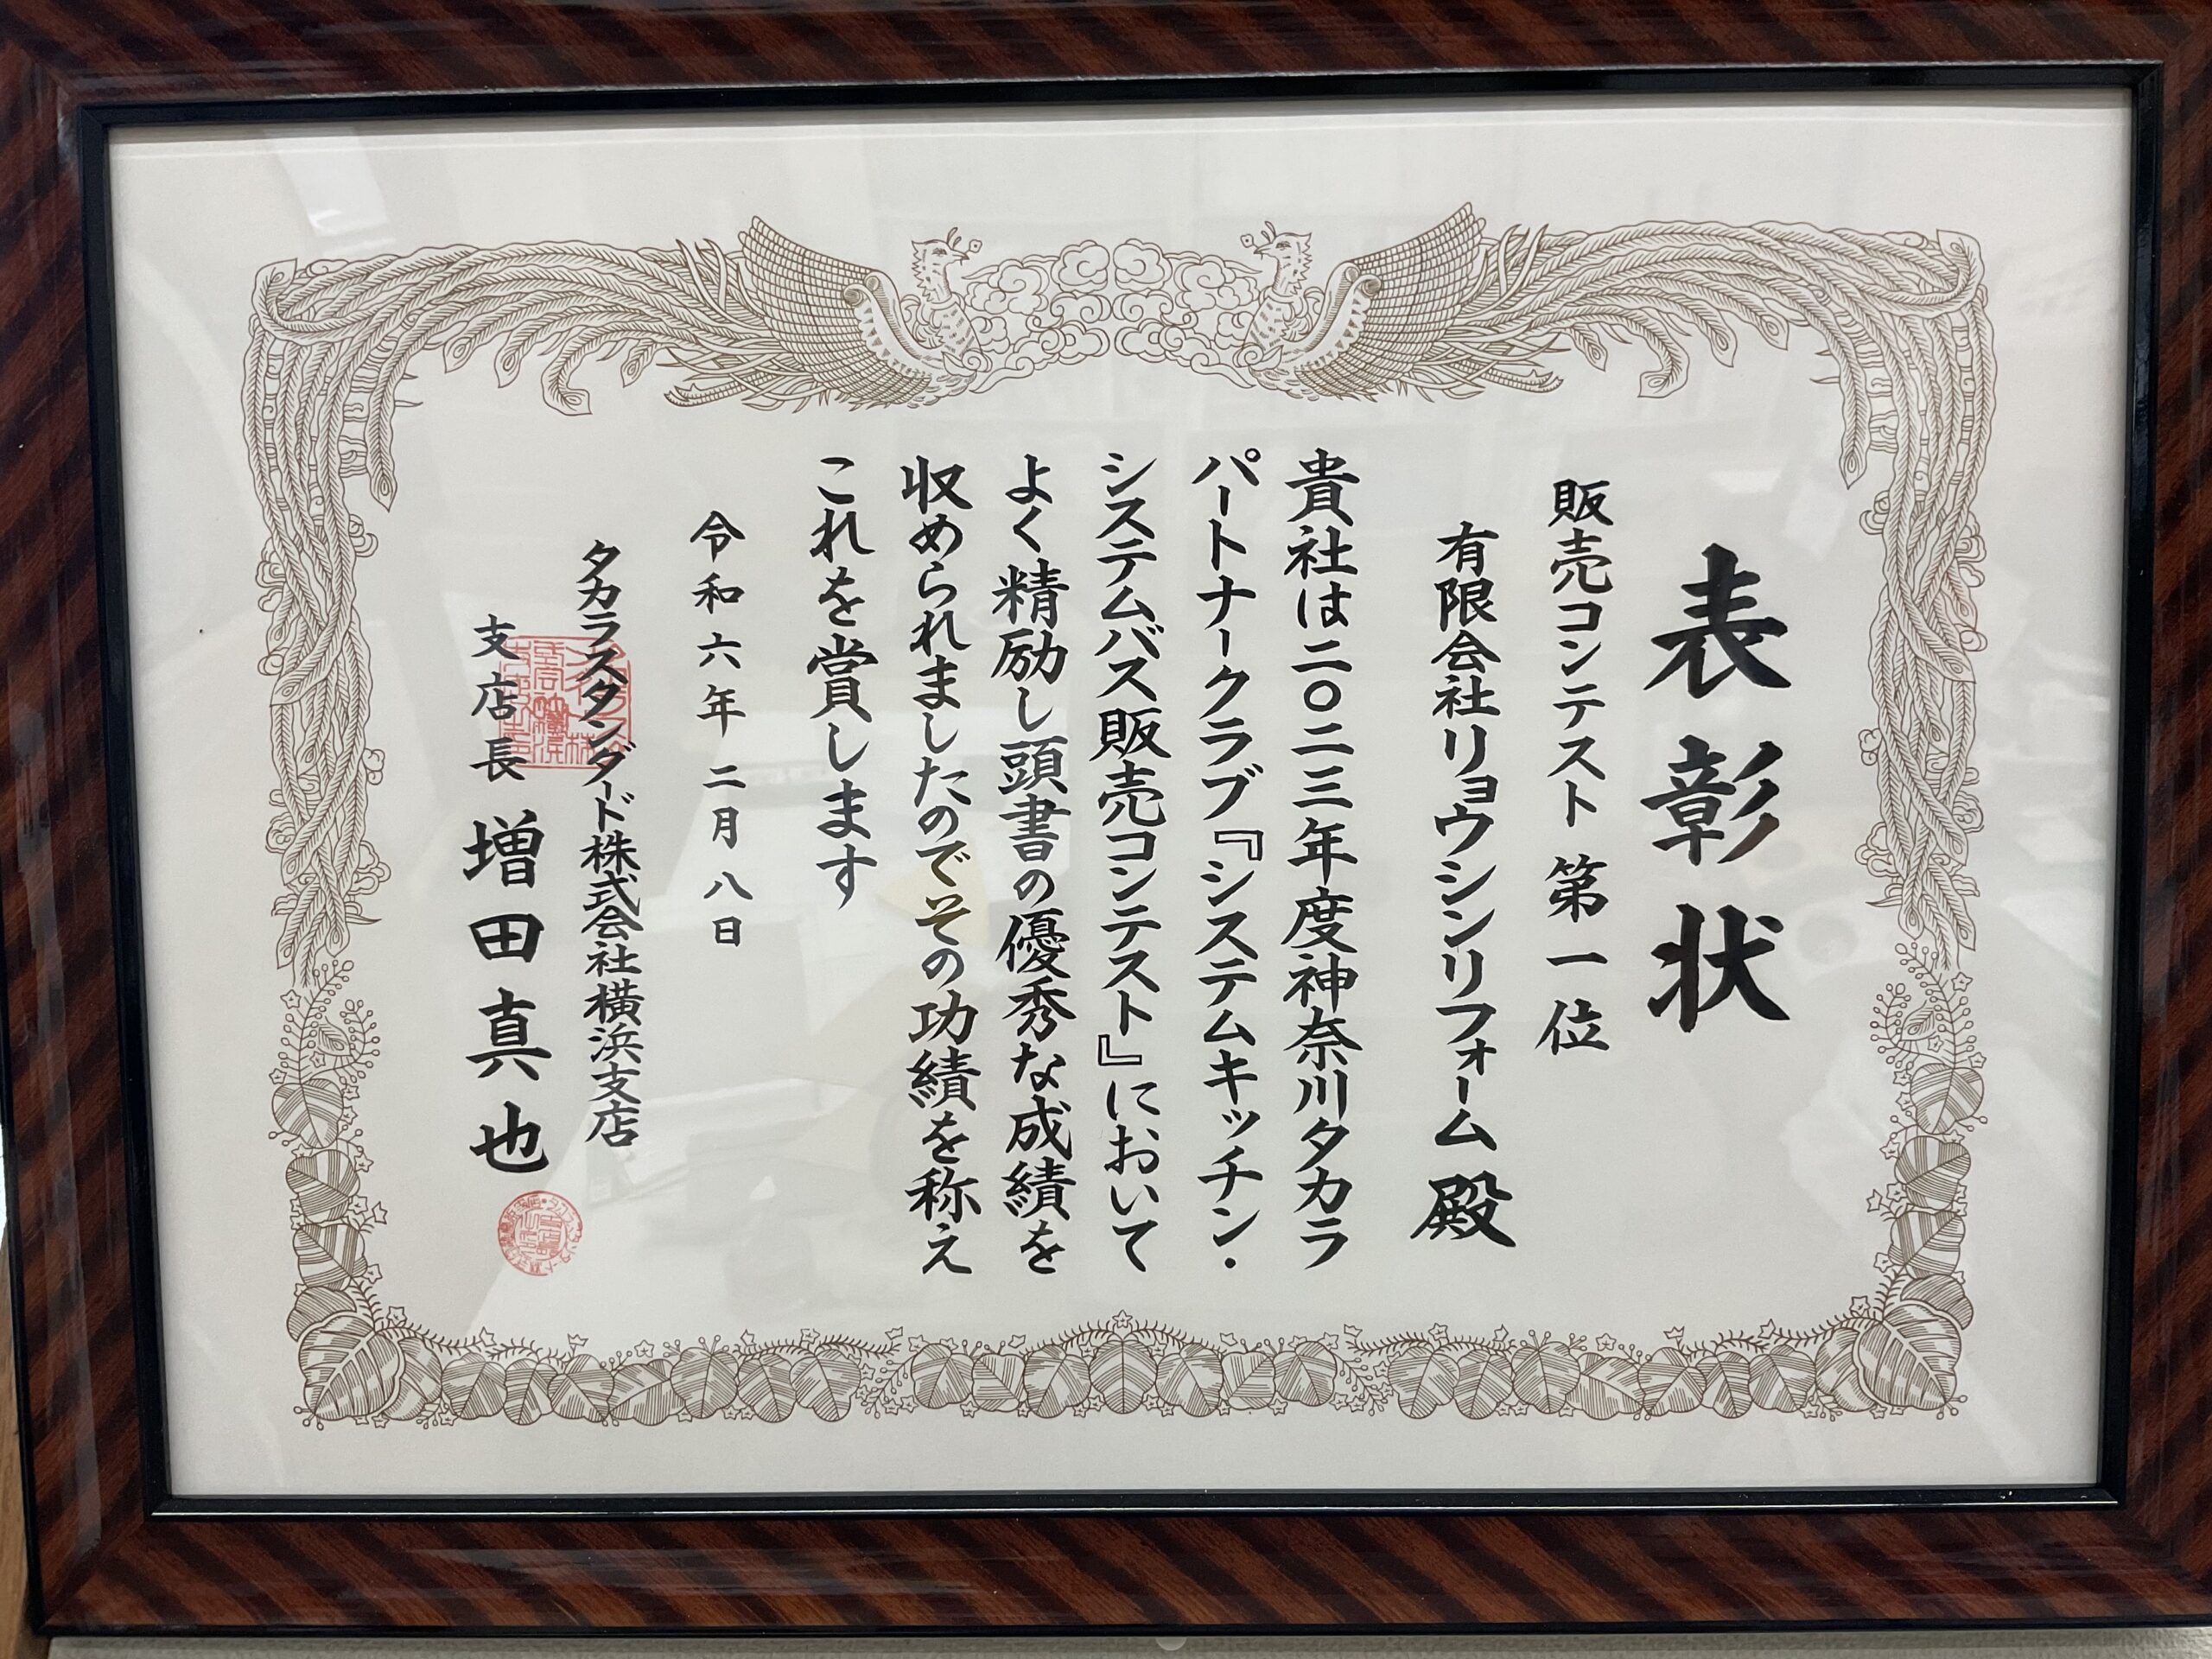 表彰状
販売コンテスト 第一位
有限会社リョウシンリフォーム 殿
貴社は二〇二三年度神奈川タカラ
パートナークラブ『システムキッチン・
システムバス販売コンテスト』において
よく精励し頭書の優秀な成績を
収められましたのでその功績を称え
これを賞します
令和六年二月八日
タカラスタンダード株式会社横浜支店
支店長 増田真也